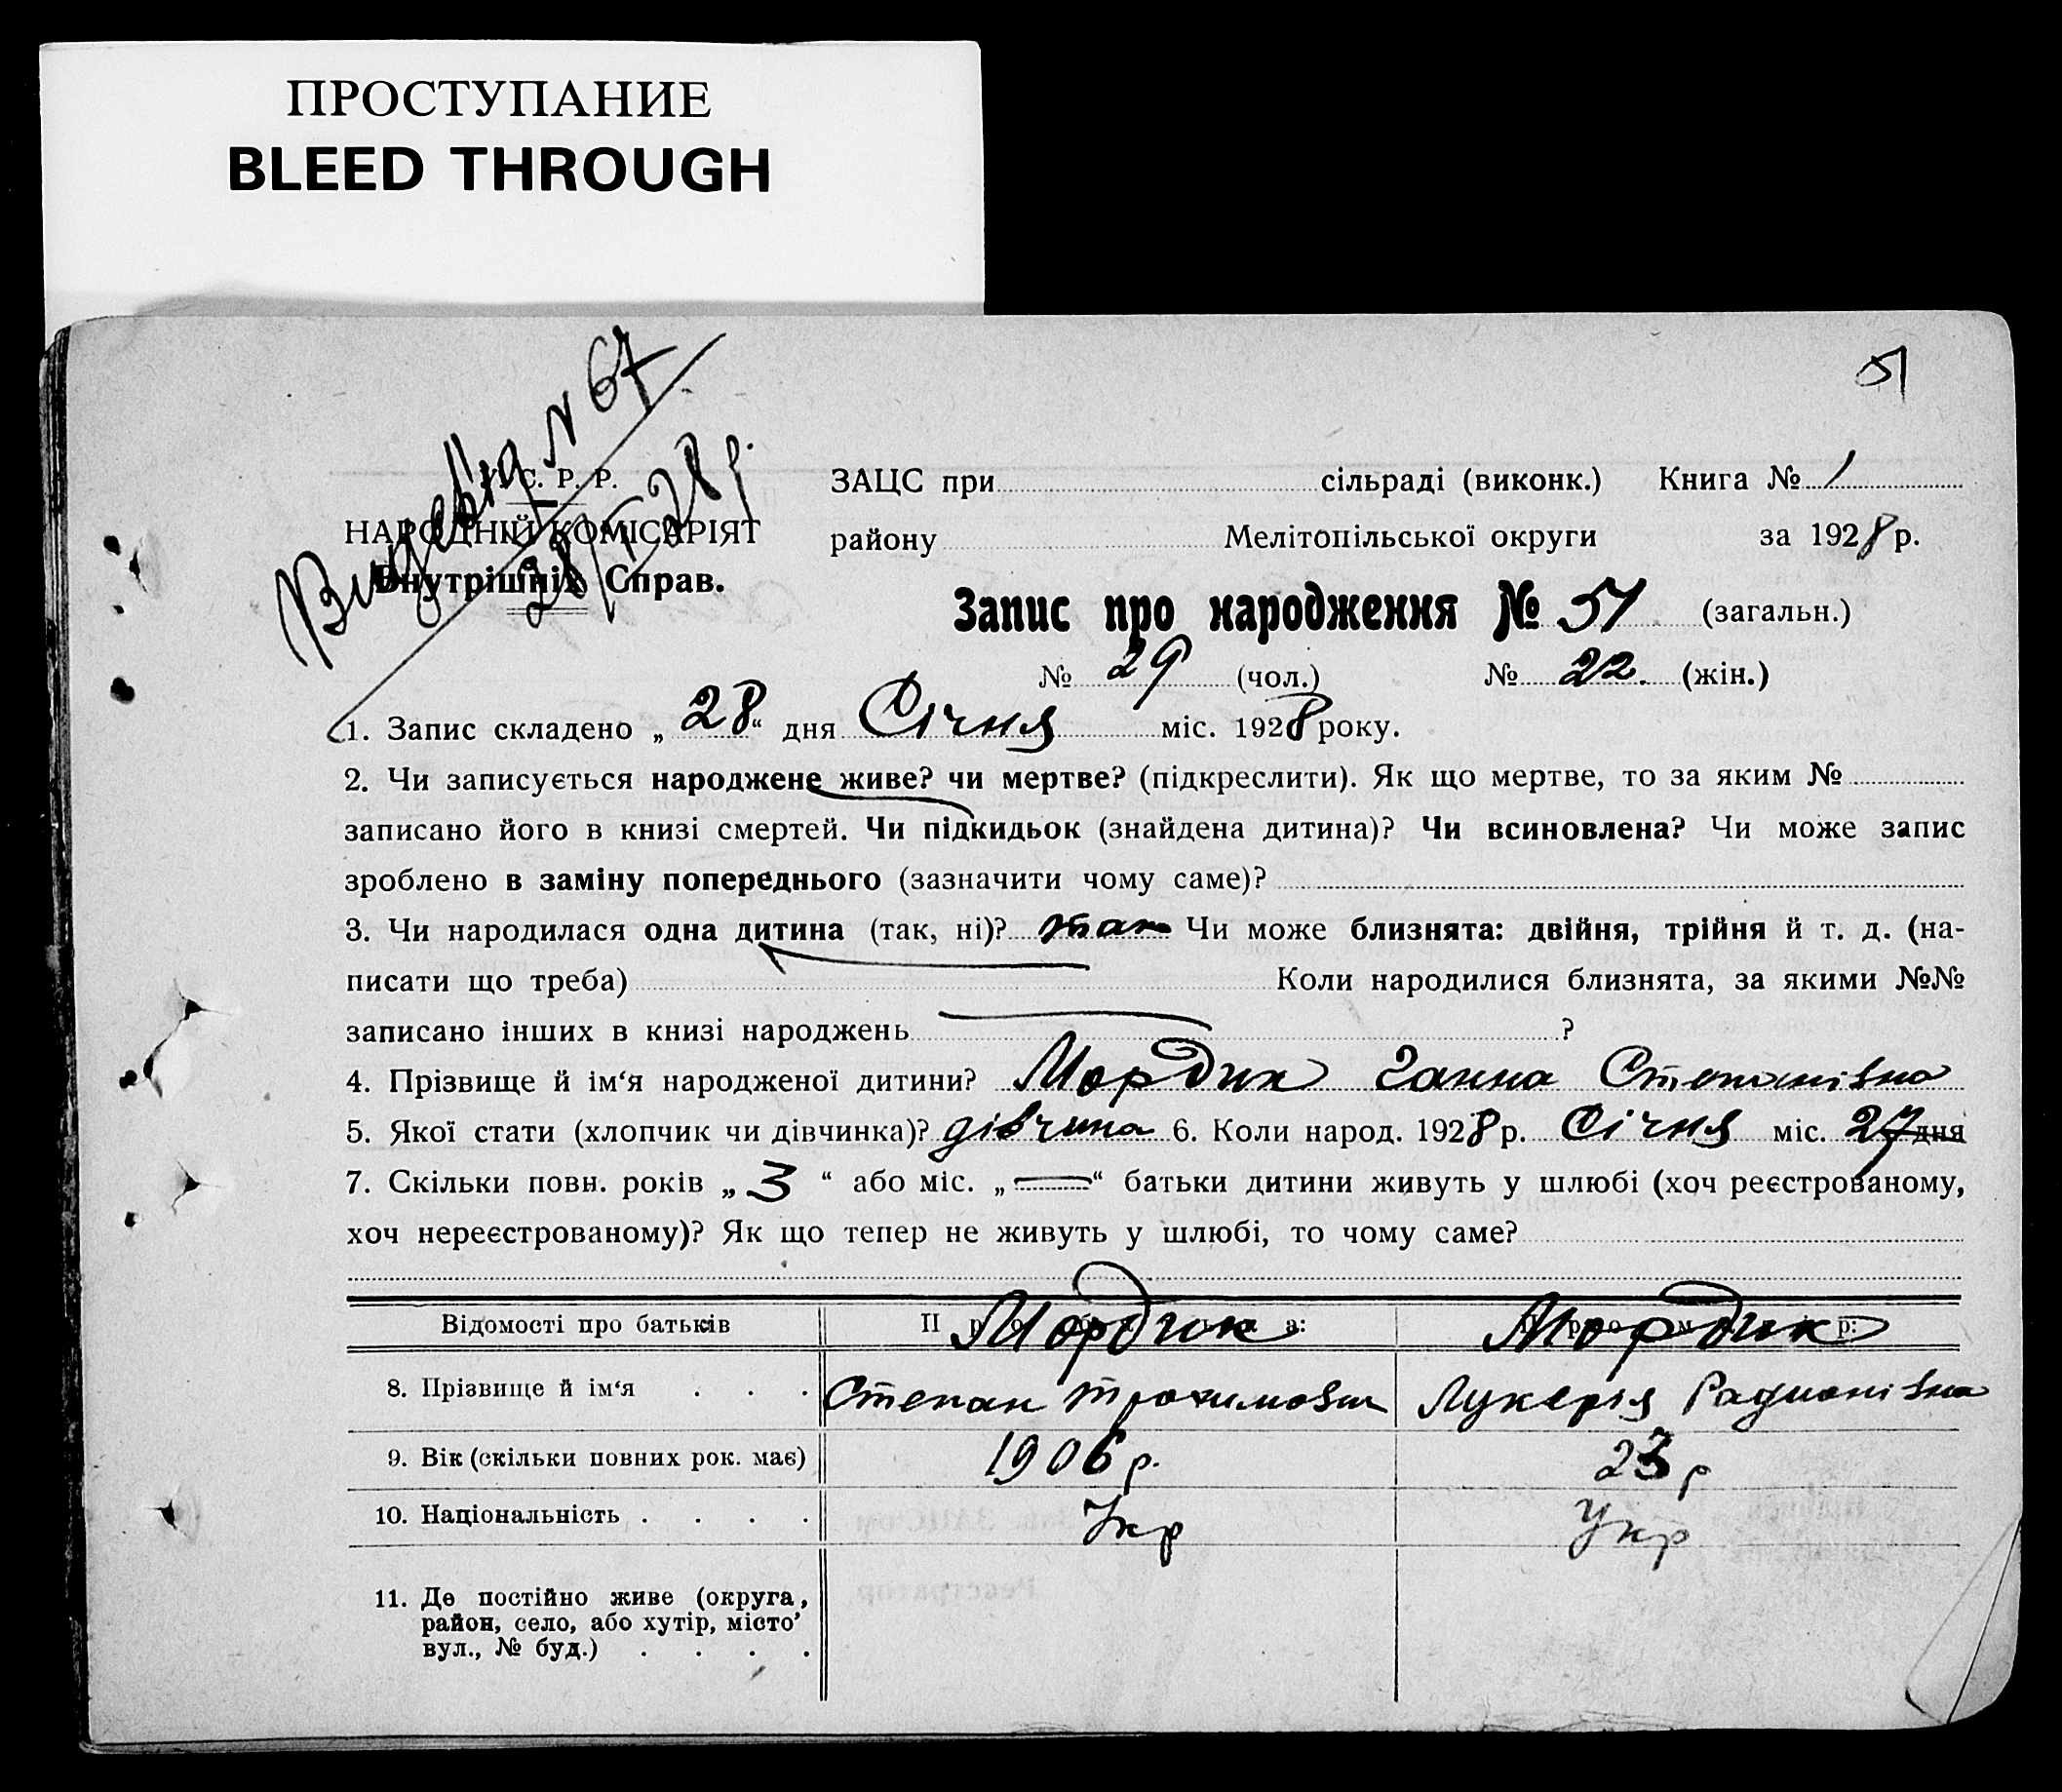 ПРОСТУПАНИЕ
BLEED THROUGH
51
N 67
28/I 28 р.
У. С. Р. Р.
НАРОДНІЙ КОМІСАРІЯТ
Внутрішніх Справ.
ЗАЦС при сільраді (виконк.) Книга № 1
району Мелітопільської округи за 1928 р.
Запис про народження № 51 (загальн.)
№ 29 (чол.) № 22. (жін.)
1. Запис складено „ 28 “ дня Січня міс. 1928 року.
2. Чи записується народжене живе? чи мертве? (підкреслити). Як що мертве, то за яким №
записано його в книзі смертей. Чи підкидьок (знайдена дитина)? Чи всиновлена? Чи може запис
зроблено в заміну попереднього (зазначити чому саме)?
3. Чи народилася одна дитина (так, ні)? так Чи може близнята: двійня, трійня й т. д. (на-
писати що треба) Коли народилися близнята, за якими №№
записано інших в книзі народжень ?
4. Прізвище й ім‘я народженої дитини? Мордик Ганна Степанівна
5. Якої стати (хлопчик чи дівчинка)? дівчина 6. Коли народ. 1928 р. Січня міс. 27 дня
7. Скільки повн. років „ 3 “ або міс. „ — “ батьки дитини живуть у шлюбі (хоч реєстрованому,
хоч нереєстрованому)? Як що тепер не живуть у шлюбі, то чому саме?
Відомості про батьків Про батька: Про матір:
Мордик Мордик
8. Прізвище й ім‘я . . . Степан Трохимович Лукерія Радионівна
9. Вік (скільки повних рок. має) 1906 р. 23 р
10. Національність . . . . Укр Укр
11. Де постійно живе (округа,
район, село, або хутір, місто’
вул., № буд.) . . . .